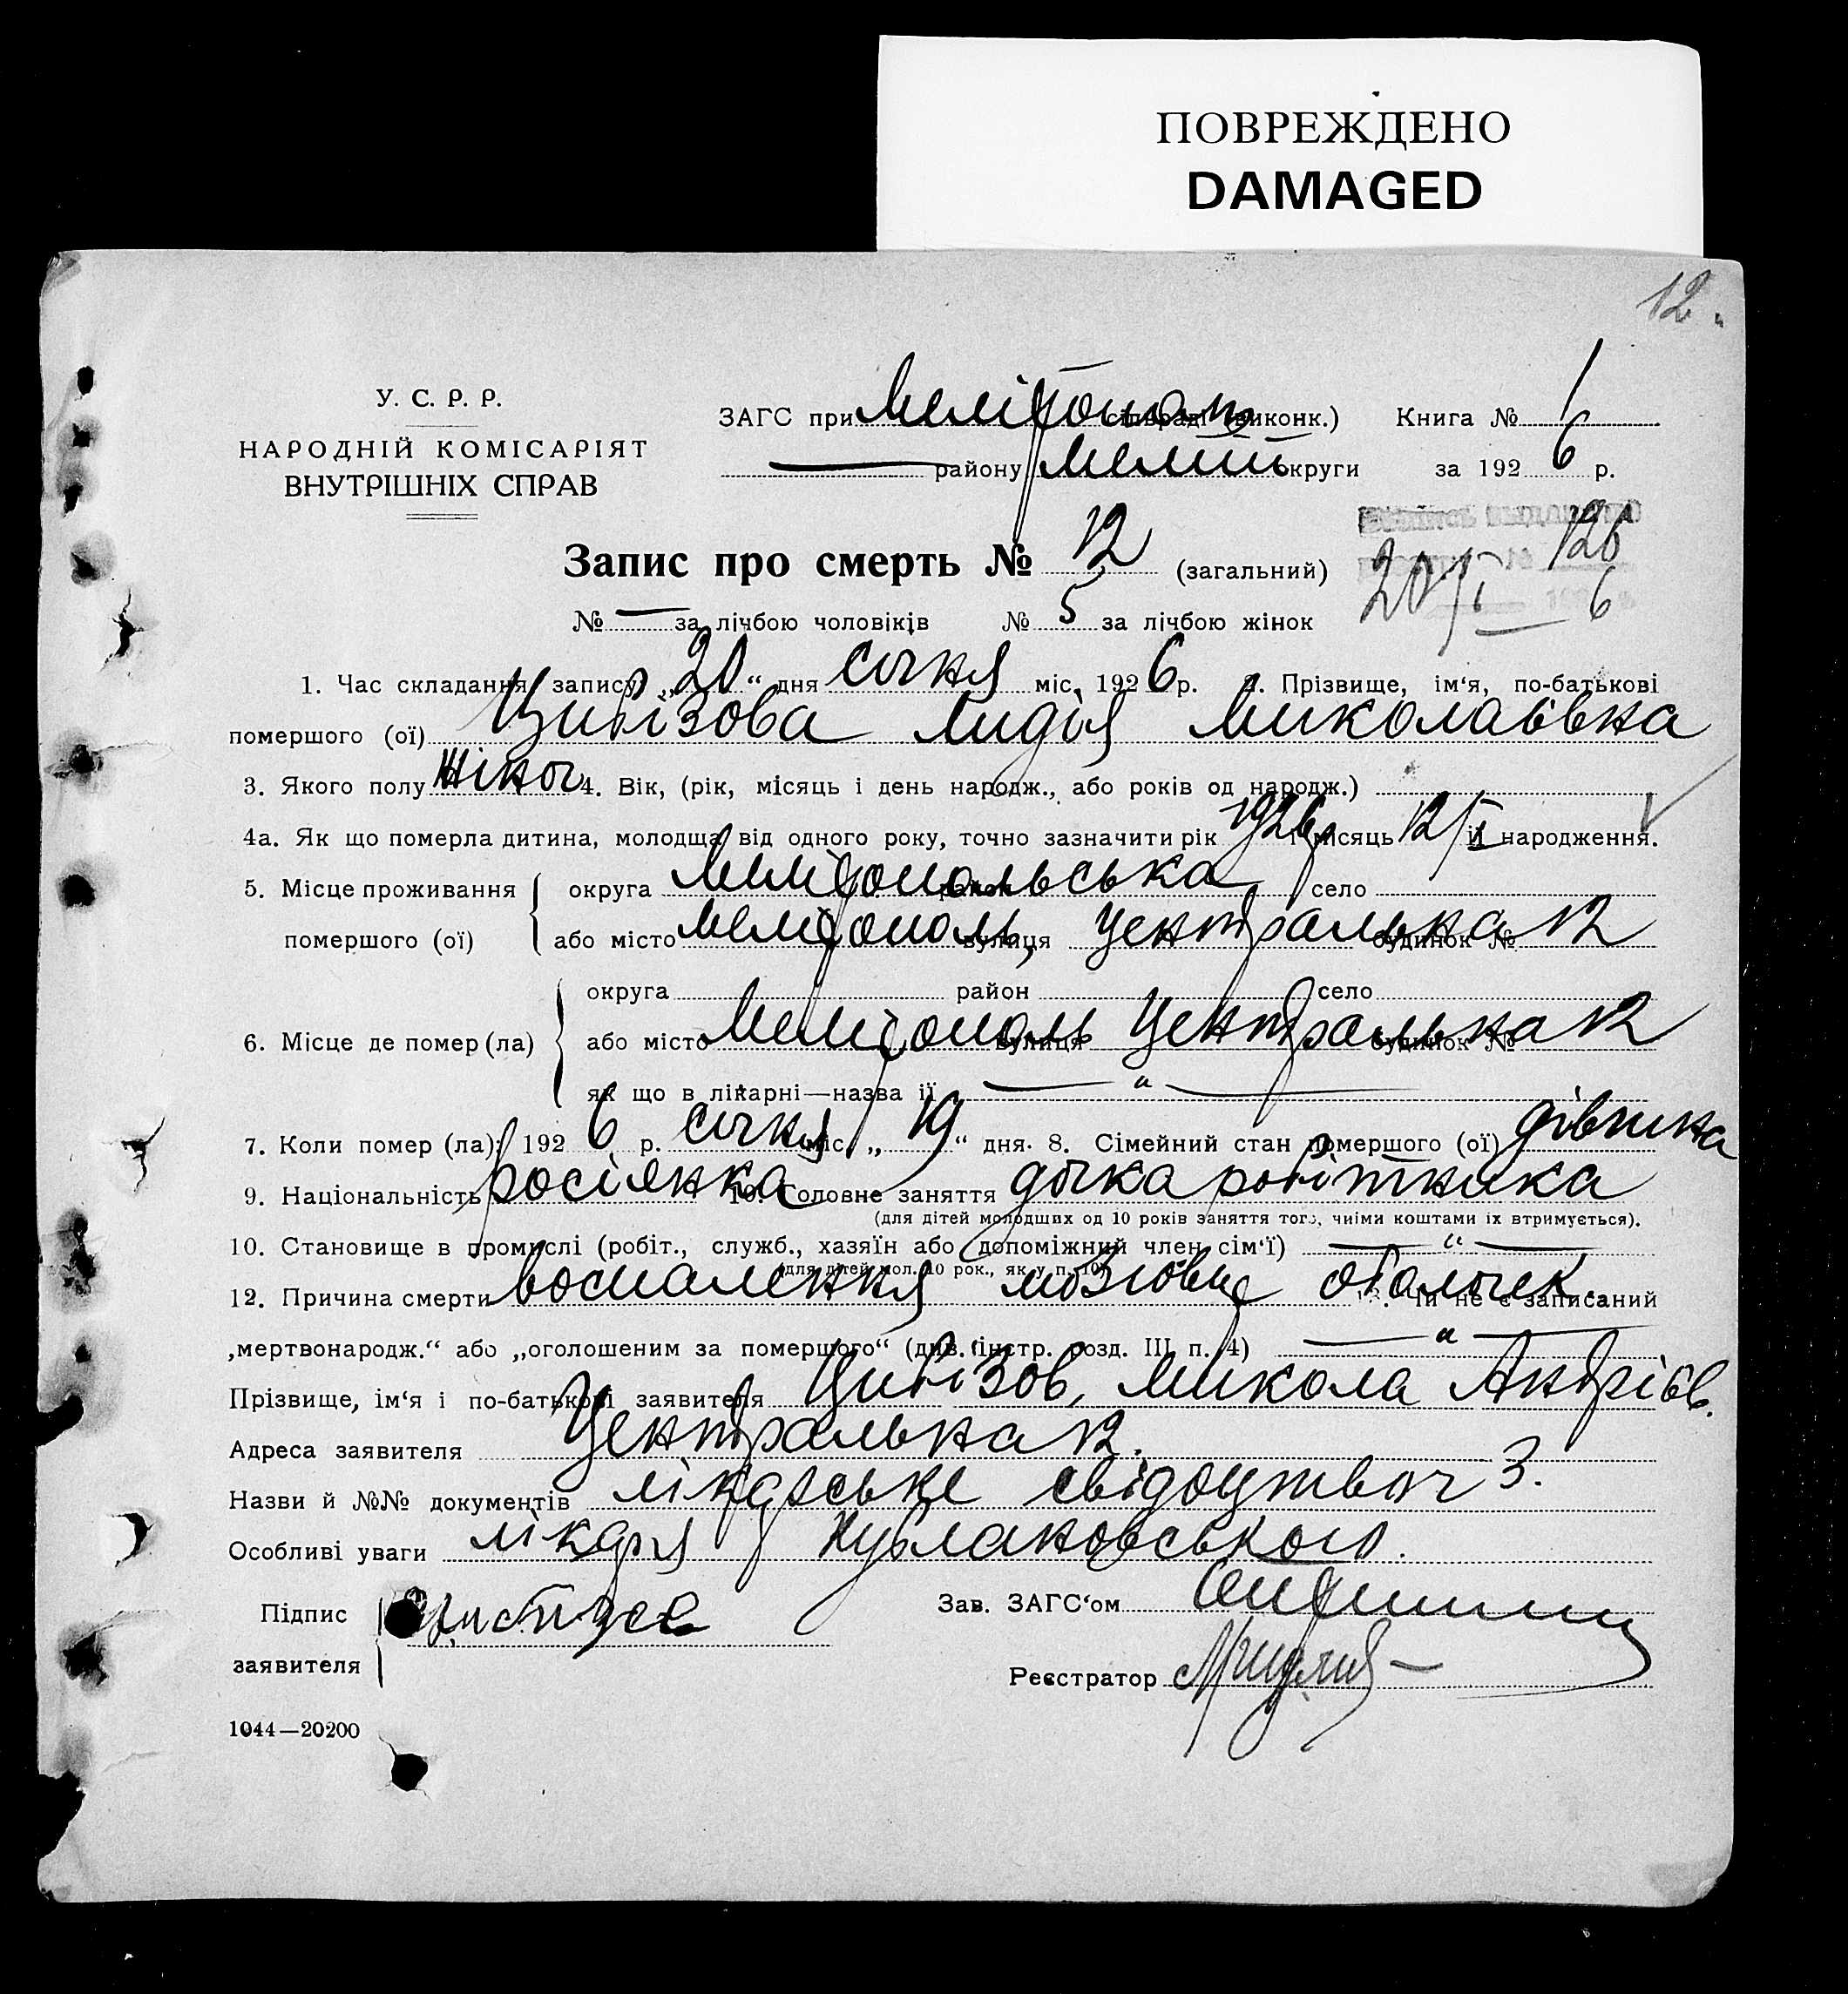 ПОВРЕЖДЕНО
DAMAGED
12.
У. С. Р. Р.
НАРОДНІЙ КОМІСАРІЯТ
ВНУТРІШНІХ СПРАВ
ЗАГС при Мелітопол сільраді (виконк.) Книга № 1
— району Меліт округи за 192 6 р.
Запис про смерть № 12 (загальний)
126
20/I 6
№ — за лічбою чоловіків № 5 за лічбою жінок
1. Час складання запису „20“ дня січня міс. 192 6 р. 2. Прізвище, ім‘я, по-батькові
помершого (ої) Цибізова Лидія Миколаївна
3. Якого полу жіноч 4. Вік, (рік, місяць і день народж., або років од народж.)
4а. Як що померла дитина, молодща від одного року, точно зазначити рік 1926 і місяць 12/I й народження.
5. Місце проживання округа Мелітопольська район село
помершого (ої) або місто Мелітополь, вулиця Центральна будинок № 12
округа район село
6. Місце де помер (ла) або місто Мелітополь вулиця Центральна будинок № 12
як що в лікарні—назва її — „ —
7. Коли помер (ла): 192 6 р. січня міс. „19“ дня. 8. Сімейний стан помершого (ої) дівчина
9. Національність росіянка 10. Головне заняття дочка робітника
(для дітей молодших од 10 років заняття того, чиїми коштами їх втримується).
10. Становище в промислі (робіт., служб., хазяїн або допоміжний член сім‘ї) — „ —
(для дітей мол. 10 рок., як у п. 10)
12. Причина смерти воспалення мозговце оболочек. 13. Чи не є записаний
„мертвонародж.“ або „оголошеним за помершого“ (див. інстр. розд. III, п. 4) — „ —
Прізвище, ім‘я і по-батькові заявителя Цибізов, Микола Андріїв.
Адреса заявителя Центральна 12.
Назви й №№ документів лікарське свідоцтво ч 3.
Особливі уваги лікаря
Підпис
заявителя
Зав. ЗАГС‘ом
Реєстратор
1044—20200